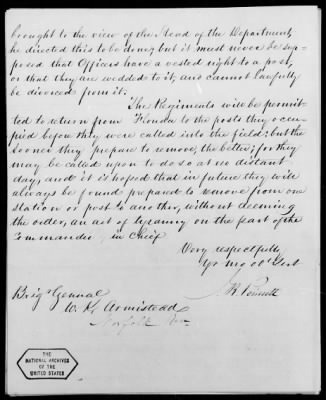 brought to the view of the Head of the Department,
he directed this to be done; but it must never be sup-
posed that Officers have a vested right to a post,
or that they are wedded to it, and cannot lawfully
be divorced from it.
The Regiments will be permit-
ted to return from Florida to the posts they occu-
pied before they were called into the field; but the
sooner they prepare to remove, the better; for they
may be called upon to do so at no distant
day, and it is hoped that in future they will
always be found prepared to remove from one
station or post to another, without deeming
the order, an act of tyranny on the part of the
Commander in Chief
Very respectfully
Yr mo obt Servt
J R Poinsett
Brigr General
W. K. Armistead
Norfolk Va
THE
NATIONAL ARCHIVES
OF THE
UNITED STATES